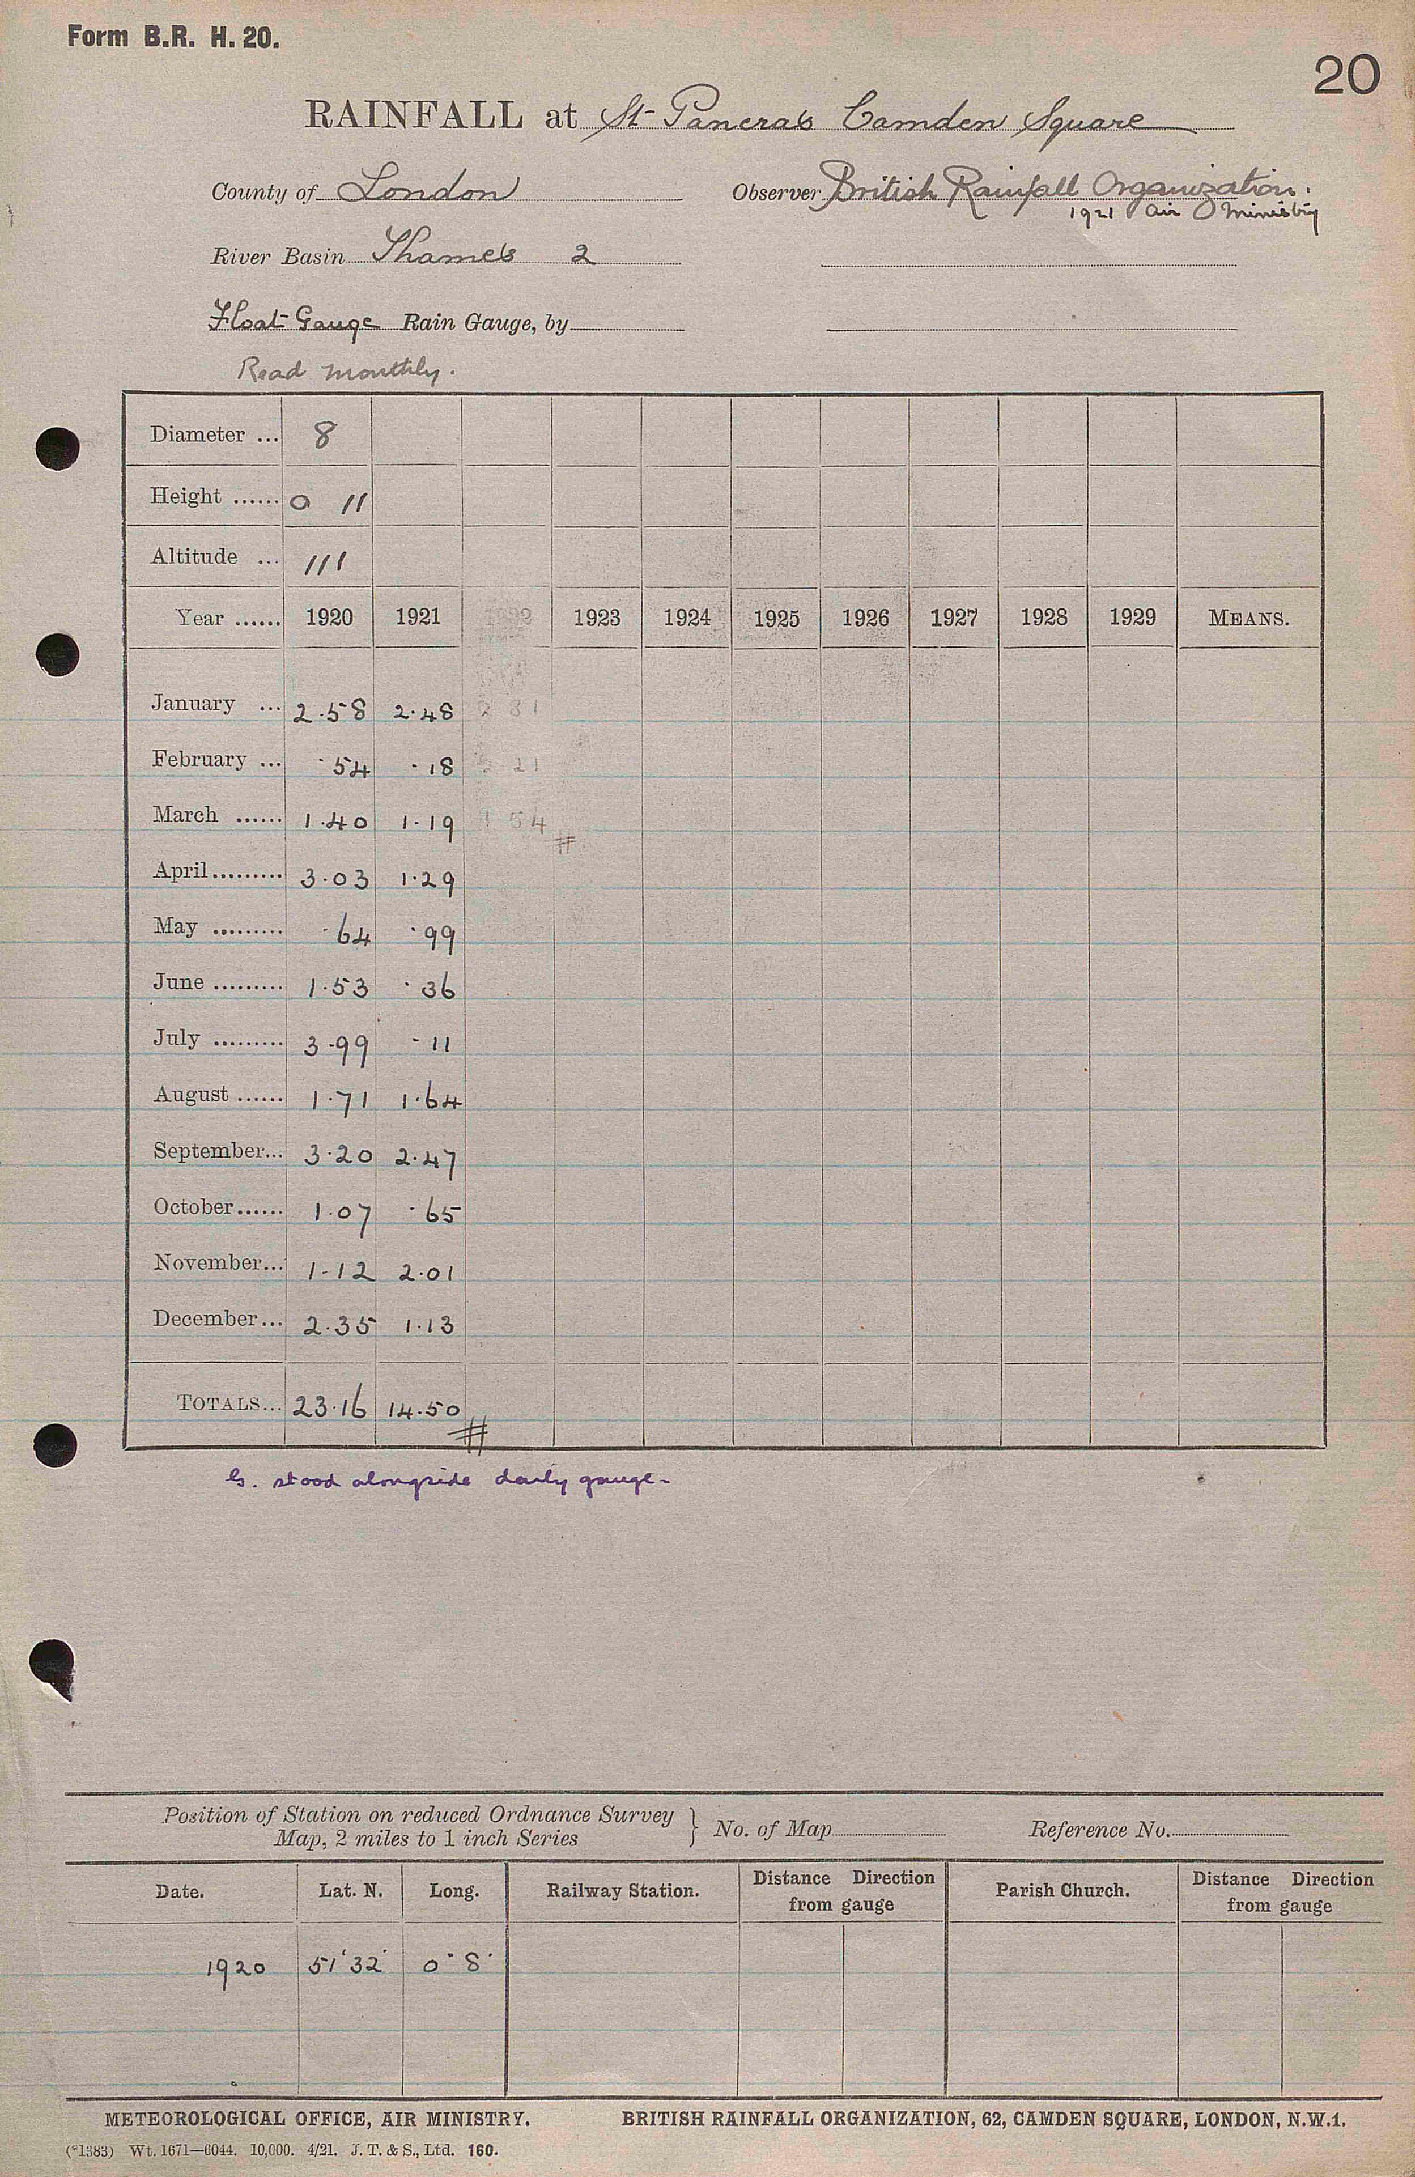 Form B.R. H. 20.
20
RAINFALL at St Pancras Camden Square
County of London Observer British Rainfall Organization.
1921 Air Ministry
River Basin Thames 2
Float Gauge Rain Gauge, by
Read monthly.
Diameter ... 8
Height ...... 0 11
Altitude ... 111
Year ...... 1920 1921 1922 1923 1924 1925 1926 1927 1928 1929 MEANS.
January ... 2.58 2.48
February ... .54 .18
March ...... 1.40 1.19
#
April ......... 3.03 1.29
May ......... .64 .99
June ......... 1.53 .36
July ......... 3.99 .11
August ...... 1.71 1.64
September... 3.20 2.47
October...... 1.07 .65
November... 1.12 2.01
December... 2.35 1.13
TOTALS... 23.16 14.50
#
G. stood alongside daily gauge.
Position of Station on reduced Ordnance Survey Map, 2 miles to 1 inch Series } No. of Map Reference No.
Date. Lat. N. Long. Railway Station. Distance Direction from gauge Parish Church. Distance Direction from gauge
1920 51°32' 0°8'
METEOROLOGICAL OFFICE, AIR MINISTRY. BRITISH RAINFALL ORGANIZATION, 62, CAMDEN SQUARE, LONDON, N.W.1.
(*1383) Wt. 1671—6044. 10,000. 4/21. J. T. & S., Ltd. 160.